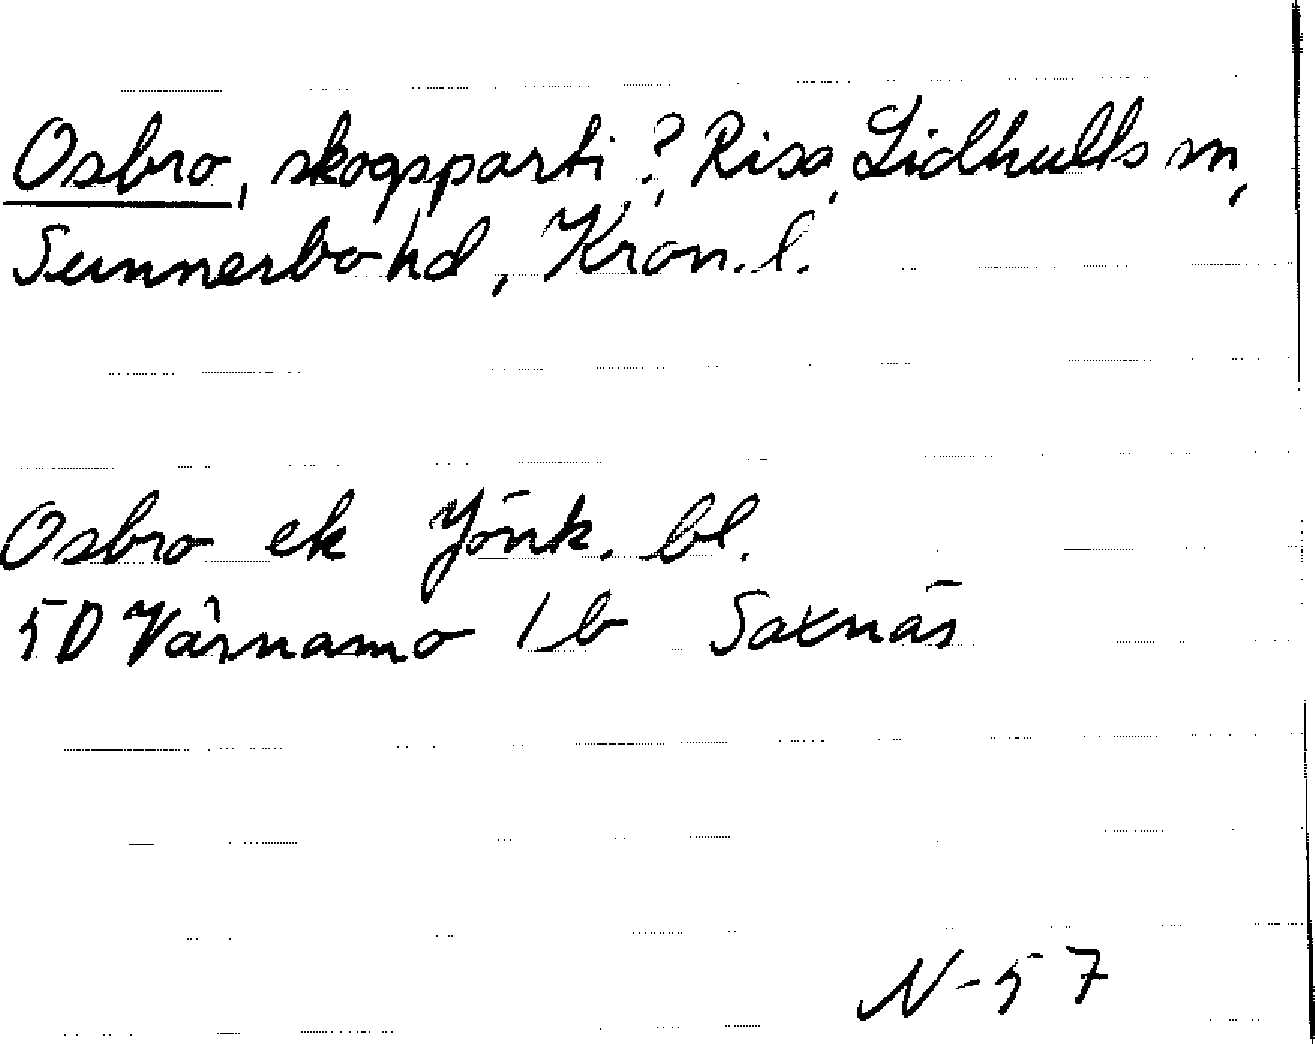 Osbro, skogsparti?, Risa, Lidhults sn,
Sunnerbo hd, Kron. l.
Osbro ek Jönk. bl.
5D Värnamo 1b Saxnäs
N-57